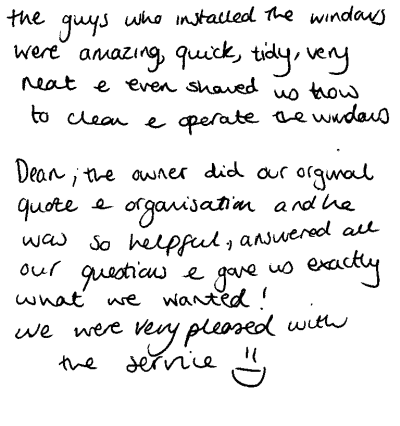 the guys who installed the windows
were amazing, quick, tidy, very
neat & even showed us how
to clean & operate the windows
Dean, the owner did our orginal
quote & organisation and he
was so helpful, answered all
our questions & gave us exactly
what we wanted!
we were very pleased with
the service